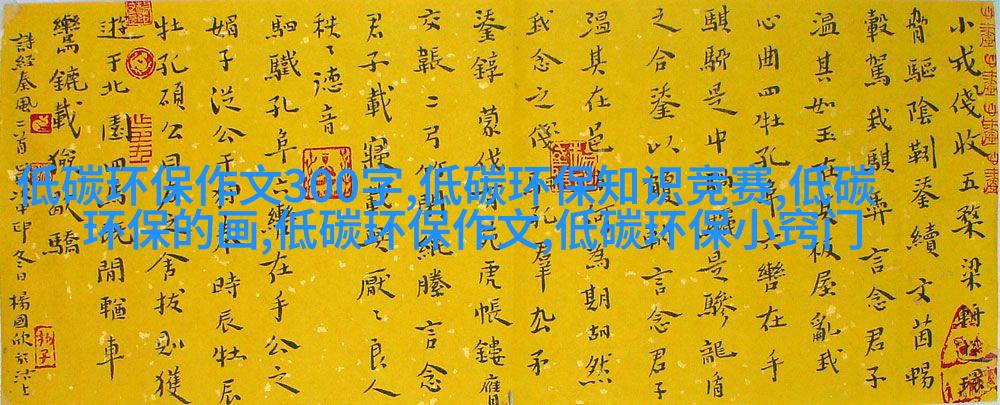 小戎俴收五楘梁輈游環
脅驅陰靷鋈續文茵暢
轂駕我騏馵言念君子
溫其如玉在其板屋亂我
心曲四牡孔阜六轡在手
騏駵是中騧驪是驂龍盾
之合鋈以觼軜言念君子
溫其在邑方何為期胡然
我念之俴駟孔羣厹矛
鋈錞蒙伐有苑虎帳鏤膺
交韔二弓竹閉緄縢言念
君子載寢載興厭〻良人
秩〻德音
駟驖孔阜六轡在手公之
媚子從公于狩時辰牡辰
牡孔碩公曰左之舍拔則獲
遊于北園四馬既閒輶車
鸞鑣載獫歇驕
詩經秦風二首 冬日楊國欣
低碳环保作文300字,低碳环保知识竞赛,低碳
环保的画,低碳环保作文,低碳环保小窍门